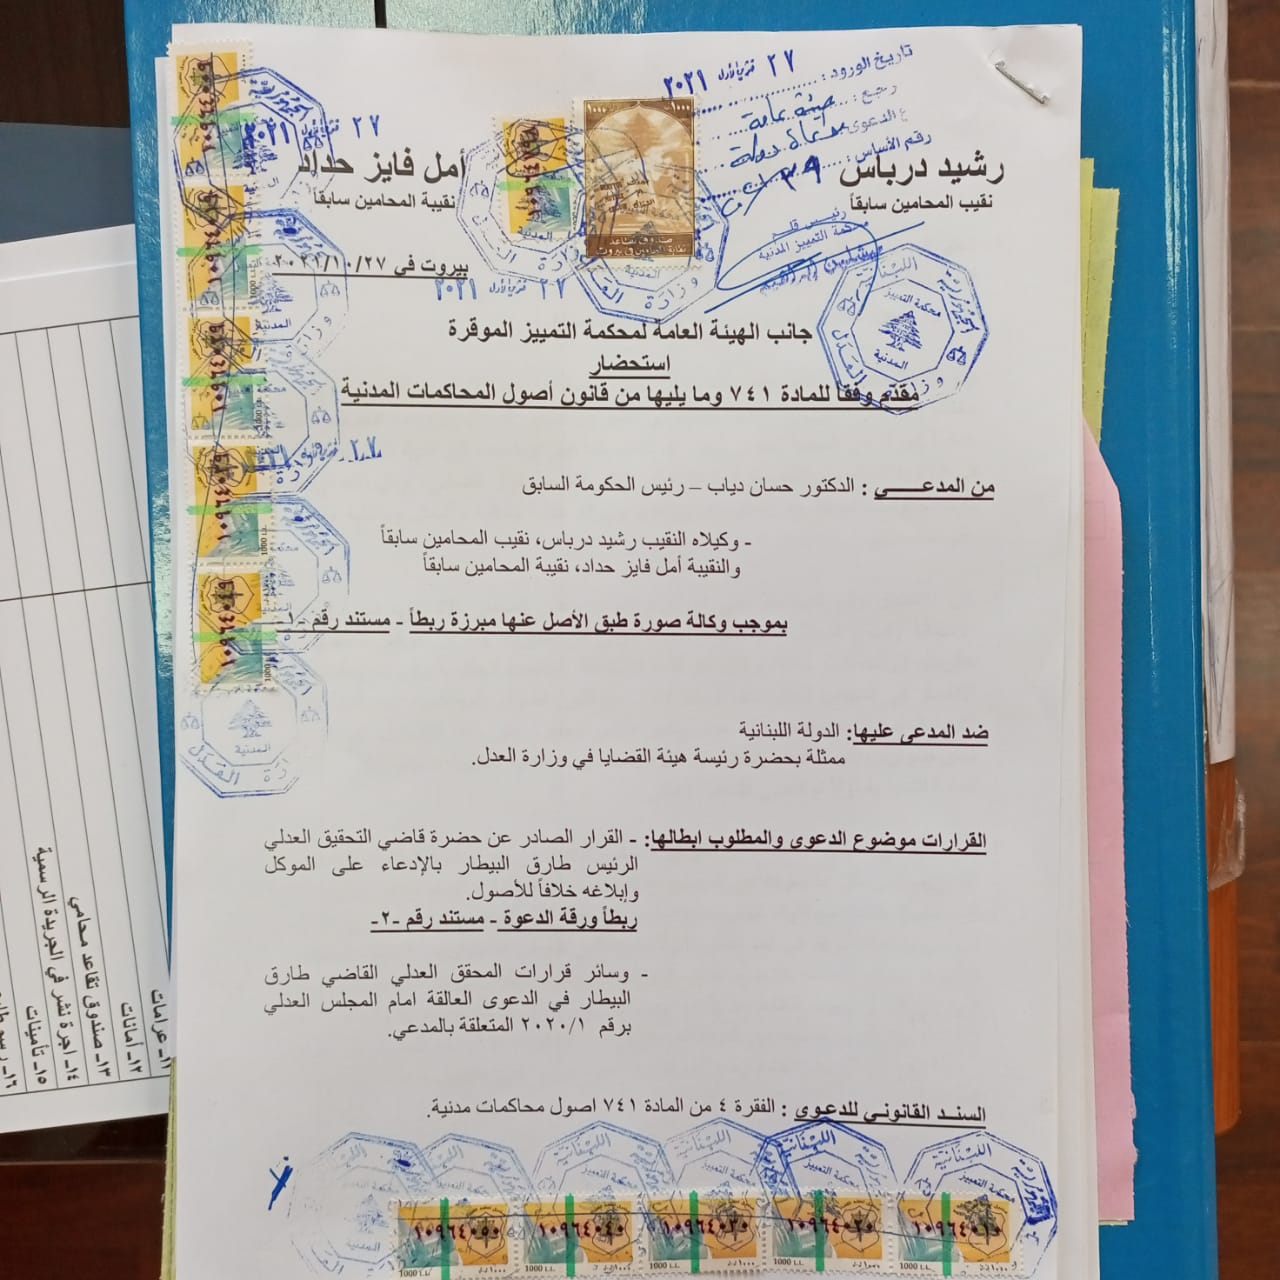 تاريخ الورود : ٢٧ تشرين الأول ٢٠٢١
هيئة عامة
رقم الأساس :
رشيد درباس
نقيب المحامين سابقاً
أمل فايز حداد
نقيبة المحامين سابقاً
رئيس قلم
محكمة التمييز المدنية
بيروت في ٢٠٢١/١٠/٢٧
٢٧ تشرين الأول ٢٠٢١
جانب الهيئة العامة لمحكمة التمييز الموقرة
استحضار
مقدّم وفقاً للمادة ٧٤١ وما يليها من قانون أصول المحاكمات المدنية
من المدعـــــي : الدكتور حسان دياب – رئيس الحكومة السابق
- وكيلاه النقيب رشيد درباس، نقيب المحامين سابقاً
والنقيبة أمل فايز حداد، نقيبة المحامين سابقاً
بموجب وكالة صورة طبق الأصل عنها مبرزة ربطاً - مستند رقم -١-
ضد المدعى عليها: الدولة اللبنانية
ممثلة بحضرة رئيسة هيئة القضايا في وزارة العدل.
القرارات موضوع الدعوى والمطلوب ابطالها: - القرار الصادر عن حضرة قاضي التحقيق العدلي
الرئيس طارق البيطار بالإدعاء على الموكل
وإبلاغه خلافاً للأصول.
ربطاً ورقة الدعوة - مستند رقم -٢-
- وسائر قرارات المحقق العدلي القاضي طارق
البيطار في الدعوى العالقة امام المجلس العدلي
برقم ٢٠٢٠/١ المتعلقة بالمدعي.
السنــد القانونـي للدعـوى : الفقرة ٤ من المادة ٧٤١ اصول محاكمات مدنية.
١٠٩٦٤٠٥٠ ١٠٩٦٤٠٤٠ ١٠٩٦٤٠٣٠ ١٠٩٦٤٠٢٠ ١٠٩٦٤٠١٠
1000 L.L. 1000 L.L. 1000 L.L. 1000 L.L. 1000 L.L.
١٢ـ أمانات
١٣ـ صندوق تقاعد محامي
١٤ـ اجرة نشر في الجريدة الرسمية
١٥ـ تأمينات